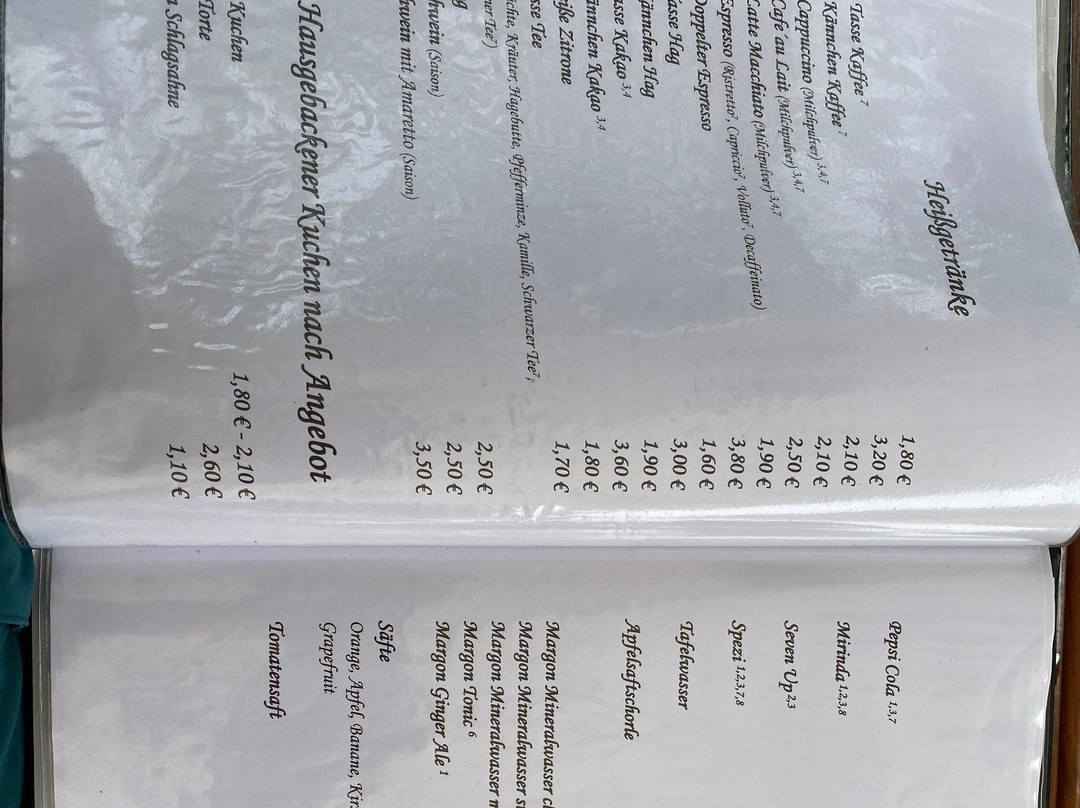 Heißgetränke
Tasse Kaffee 7 1,80 €
Kännchen Kaffee 7 3,20 €
Cappuccino (Milchpulver) 3,4,7 2,10 €
Café au Lait (Milchpulver) 3,4,7 2,10 €
Latte Macchiato (Milchpulver) 3,4,7 2,50 €
Espresso (Ristretto7, Capriccio7, Volluto7, Decaffeinato) 1,90 €
Doppelter Espresso 3,80 €
asse Hag 1,60 €
ännchen Hag 3,00 €
asse Kakao 3,4 1,90 €
ännchen Kakao 3,4 3,60 €
iße Zitrone 1,80 €
sse Tee 1,70 €
chte, Kräuter, Hagebutte, Pfefferminze, Kamille, Schwarzer Tee7,
ner Tee7)
g 2,50 €
hwein (Saison) 2,50 €
hwein mit Amaretto (Saison) 3,50 €
Hausgebackener Kuchen nach Angebot
Kuchen 1,80 € - 2,10 €
Torte 2,60 €
n Schlagsahne 1,10 €
Pepsi Cola 1,3,7
Mirinda 1,2,3,8
Seven Up 2,3
Spezi 1,2,3,7,8
Tafelwasser
Apfelsaftschorle
Margon Mineralwasser cl
Margon Mineralwasser s
Margon Mineralwasser n
Margon Tonic 6
Margon Ginger Ale 1
Säfte
Orange, Apfel, Banane, Kir
Grapefruit
Tomatensaft